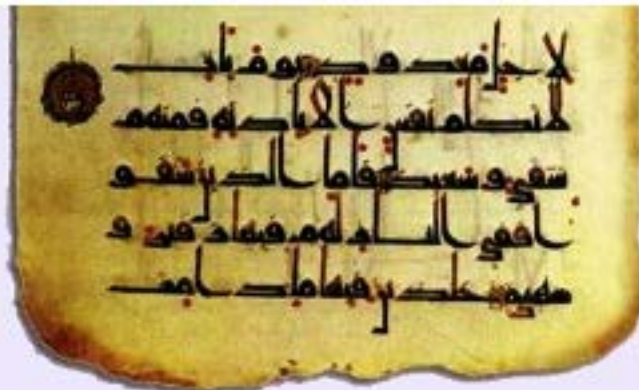 لاجل معدود يوم يات
لا تكلم نفس الا باذنه فمنهم
شقي و سعيد فاما الذين شقو
ا ففي النار لهم فيها زفير و
شهيق خلدين فيها ما دامت